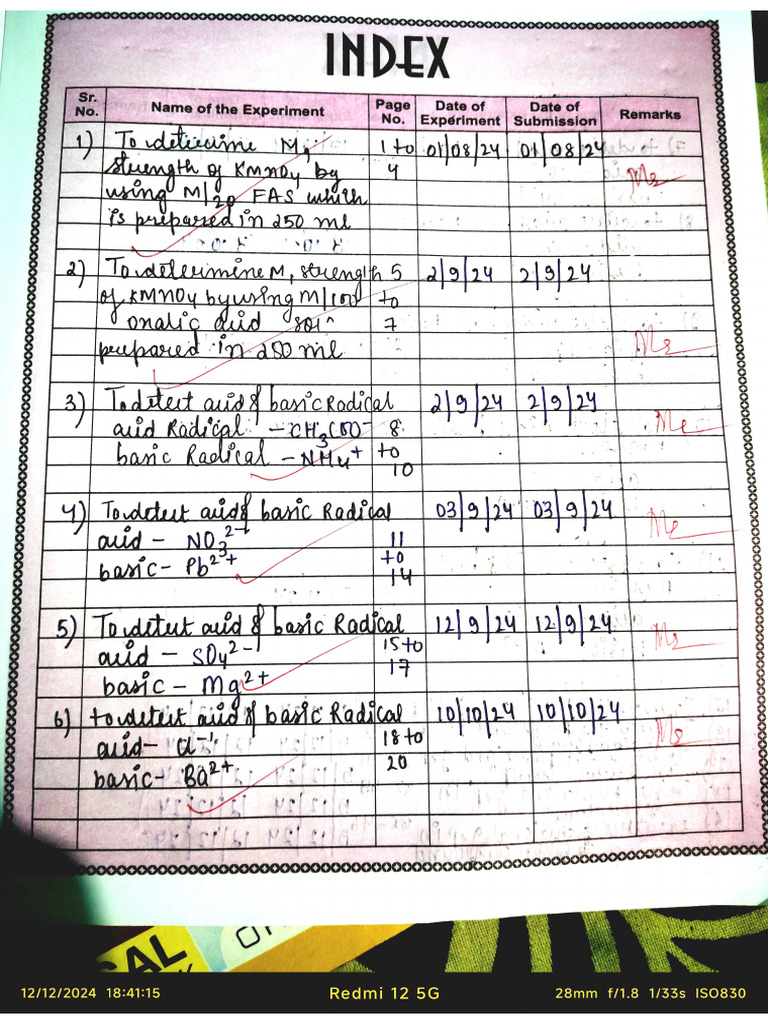 INDEX
Sr. No. Name of the Experiment Page No. Date of Experiment Date of Submission Remarks
1) To determine M, 1 to 01/08/24 01/08/24
strength of KMnO4 by 4
using M/20 FAS which
is prepared in 250 ml
2) To determine M, strength 5 2/9/24 2/9/24
of KMNO4 by using M/100 to
onalic acid solⁿ 7
prepared in 250 ml
3) To detect acid & basic Radical 2/9/24 2/9/24
acid Radical - CH3COO- 8
basic Radical - NH4+ to
10
4) To detect acid & basic Radical 03/9/24 03/9/24
acid - NO3 2- 11
basic - Pb2+ to
14
5) To detect acid & basic Radical 12/9/24 12/9/24
acid - SO4 2- 15 to
basic - Mg2+ 17
6) to detect acid & basic Radical 10/10/24 10/10/24
acid - Cl- 18 to
basic - Ba2+ 20
12/12/2024 18:41:15 Redmi 12 5G 28mm f/1.8 1/33s ISO830